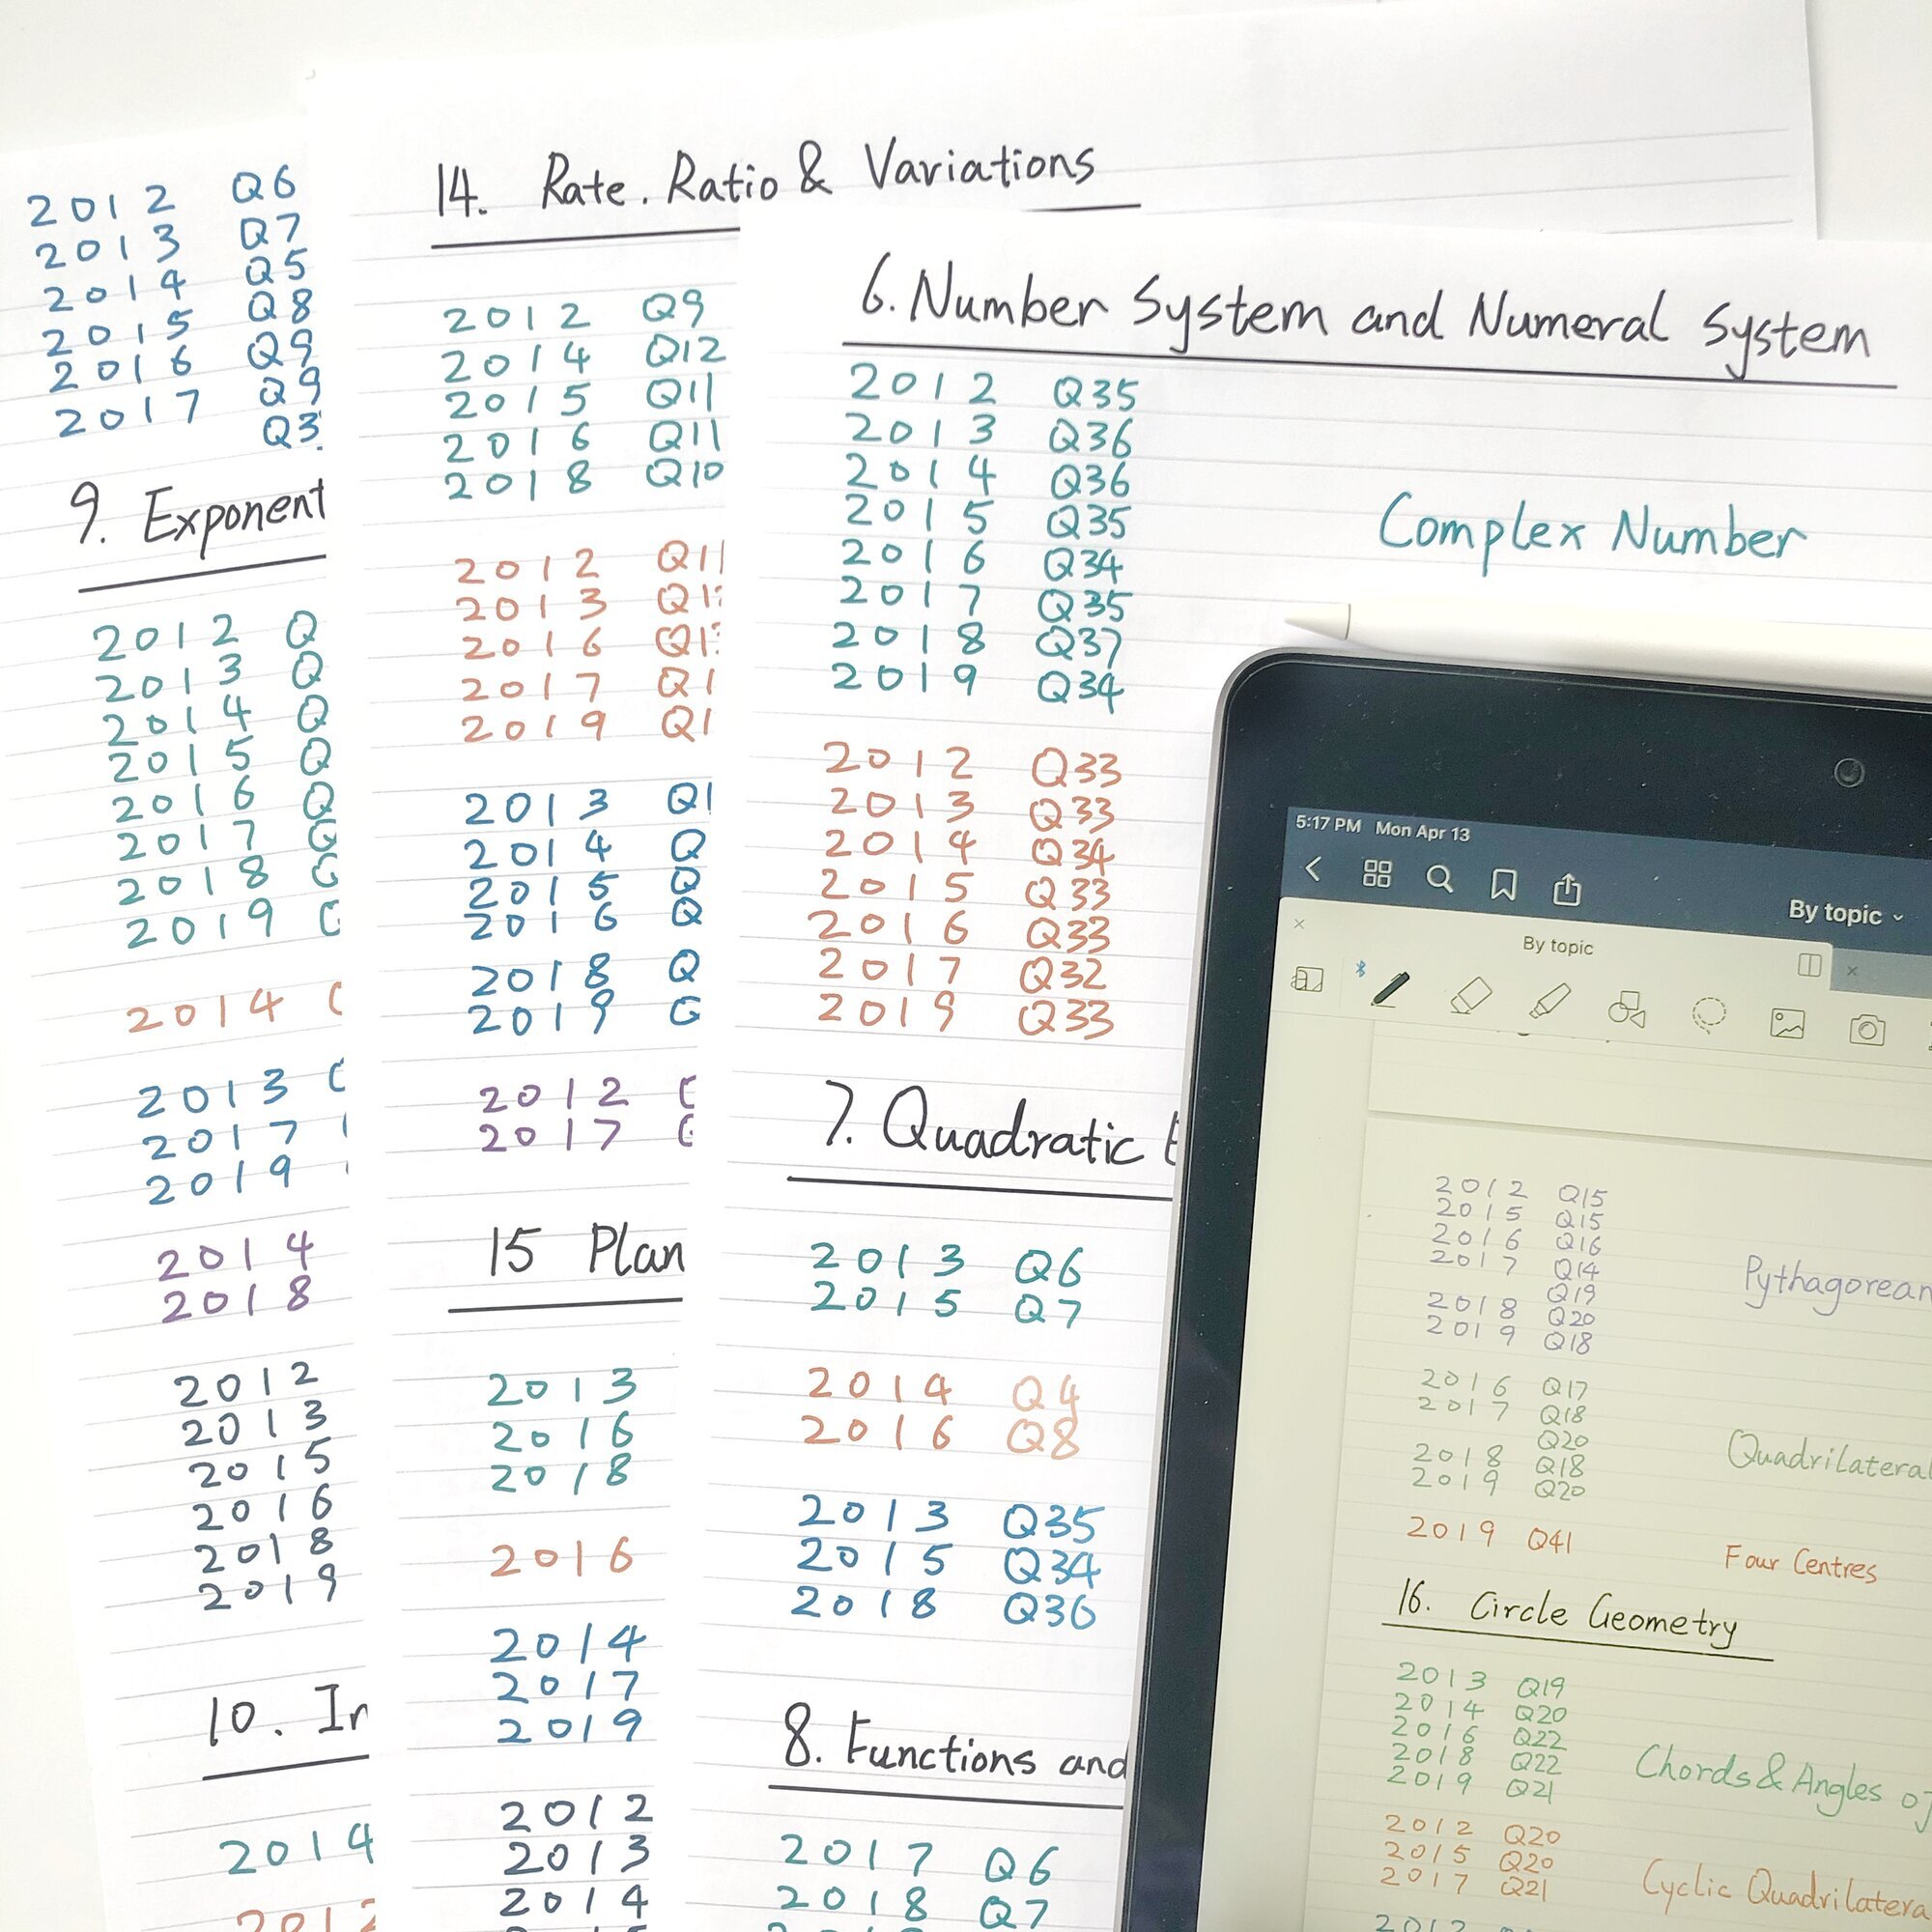 2012 Q6
2013 Q7
2014 Q5
2015 Q8
2016 Q9
2017 Q9
Q3
9. Exponent
2012 Q
2013 Q
2014 Q
2015 Q
2016 Q
2017
2018
2019
2014
2013
2017
2019
2014
2018
2012
2013
2015
2016
2018
2019
10. In
2014
14. Rate. Ratio & Variations
2012 Q9
2014 Q12
2015 Q11
2016 Q11
2018 Q10
2012 Q11
2013 Q1
2016 Q1
2017 Q1
2019 Q1
2013 Q1
2014 Q
2015 Q
2016 Q
2018 Q
2019
2012
2017
15 Plan
2013
2016
2018
2016
2014
2017
2019
2012
2013
2014
6. Number System and Numeral System
2012 Q35
2013 Q36
2014 Q36
2015 Q35
2016 Q34
2017 Q35
2018 Q37
2019 Q34
Complex Number
2012 Q33
2013 Q33
2014 Q34
2015 Q33
2016 Q33
2017 Q32
2019 Q33
7. Quadratic E
2013 Q6
2015 Q7
2014 Q4
2016 Q8
2013 Q35
2015 Q34
2018 Q36
8. Functions and
2017 Q6
2018 Q7
5:17 PM Mon Apr 13
By topic
By topic
2012 Q15
2015 Q15
2016 Q16
2017 Q14
Q19
2018 Q20
2019 Q18
Pythagorean
2016 Q17
2017 Q18
Q20
2018 Q18
2019 Q20
Quadrilateral
2019 Q41
Four Centres
16. Circle Geometry
2013 Q19
2014 Q20
2016 Q22
2018 Q22
2019 Q21
Chords & Angles of
2012 Q20
2015 Q20
2017 Q21
Cyclic Quadrilatera
2012